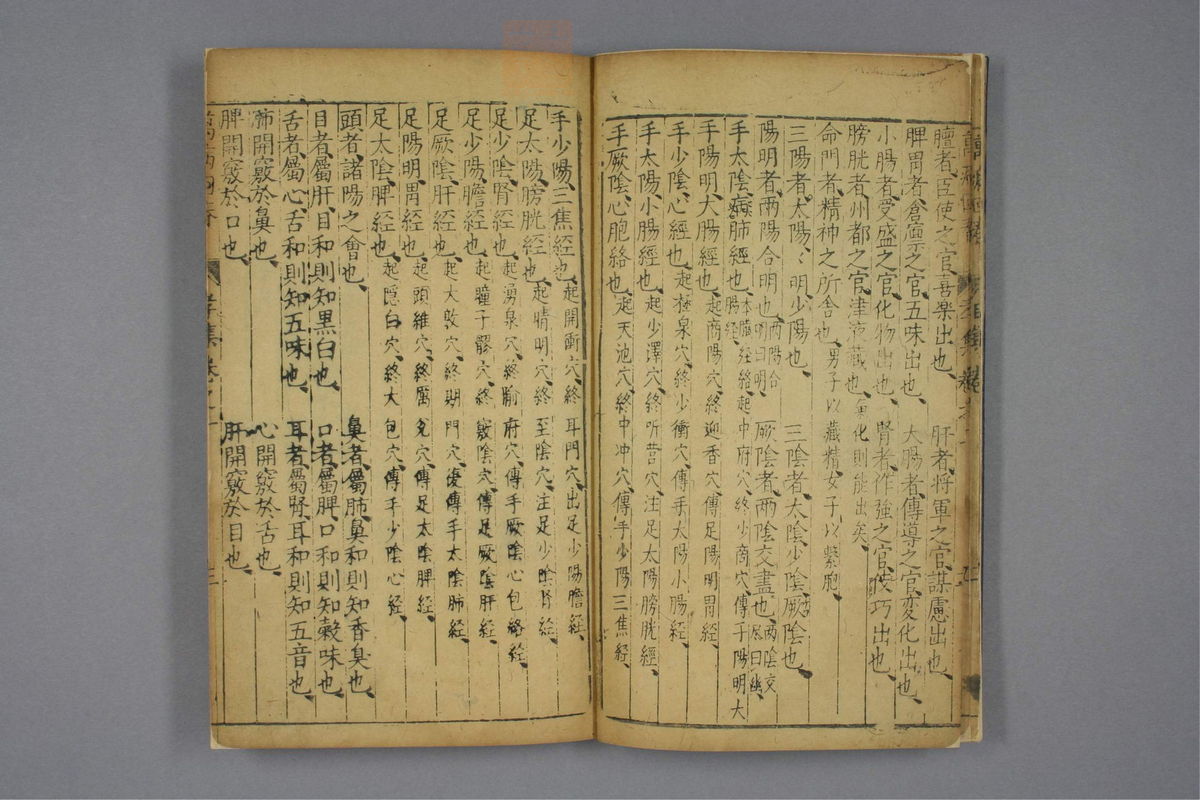 膻者臣使之官喜樂出也　肝者将軍之官謀慮出也
脾胃者倉廩之官五味出也　大腸者傳導之官変化出也
小腸者受盛之官化物出也　腎者作強之官伎巧出也
膀胱者州都之官津液藏也氣化則能出矣
命門者精神之所舎也男子以藏精女子以繫胞
三陽者太陽〻明少陽也　三陰者太陰少陰厥陰也
陽明者兩陽合明也兩陽合明曰明　厥陰者兩陰交盡也兩陰交尽曰幽
手太陰肺経也起中府穴終少商穴傳手陽明大腸経
手陽明大腸経也起商陽穴終迎香穴傳足陽明胃経
手少陰心經也起極泉穴終少衝穴傳手太陽小腸経
手太陽小腸經也起少澤穴終听宮穴注足太陽膀胱經
手厥陰心胞絡也起天池穴終中冲穴傳手少陽三焦経
手少陽三焦經也起開衝穴終耳門穴出足少陽膽経
足太陽膀胱經也起晴明穴終至陰穴注足少陰腎経
足少陰腎経也起湧泉穴終腧府穴傳手厥陰心包絡経
足少陽膽経也起瞳子髎穴終竅陰穴傳足厥陰肝経
足厥陰肝経也起大敦穴終期門穴復傳手太陰肺経
足陽明胃経也起頭維穴終厲兌穴傳足太陰脾経
足太陰脾経也起隠白穴終大包穴傳手少陰心経
頭者諸陽之會也　鼻者屬肺鼻和則知香臭也
目者屬肝目和則知黒白也　口者屬脾口和則知穀味也
舌者屬心舌和則知五味也　耳者屬腎耳和則知五音也
肺開竅於鼻也　心開竅於舌也
脾開竅於口也　肝開竅於目也